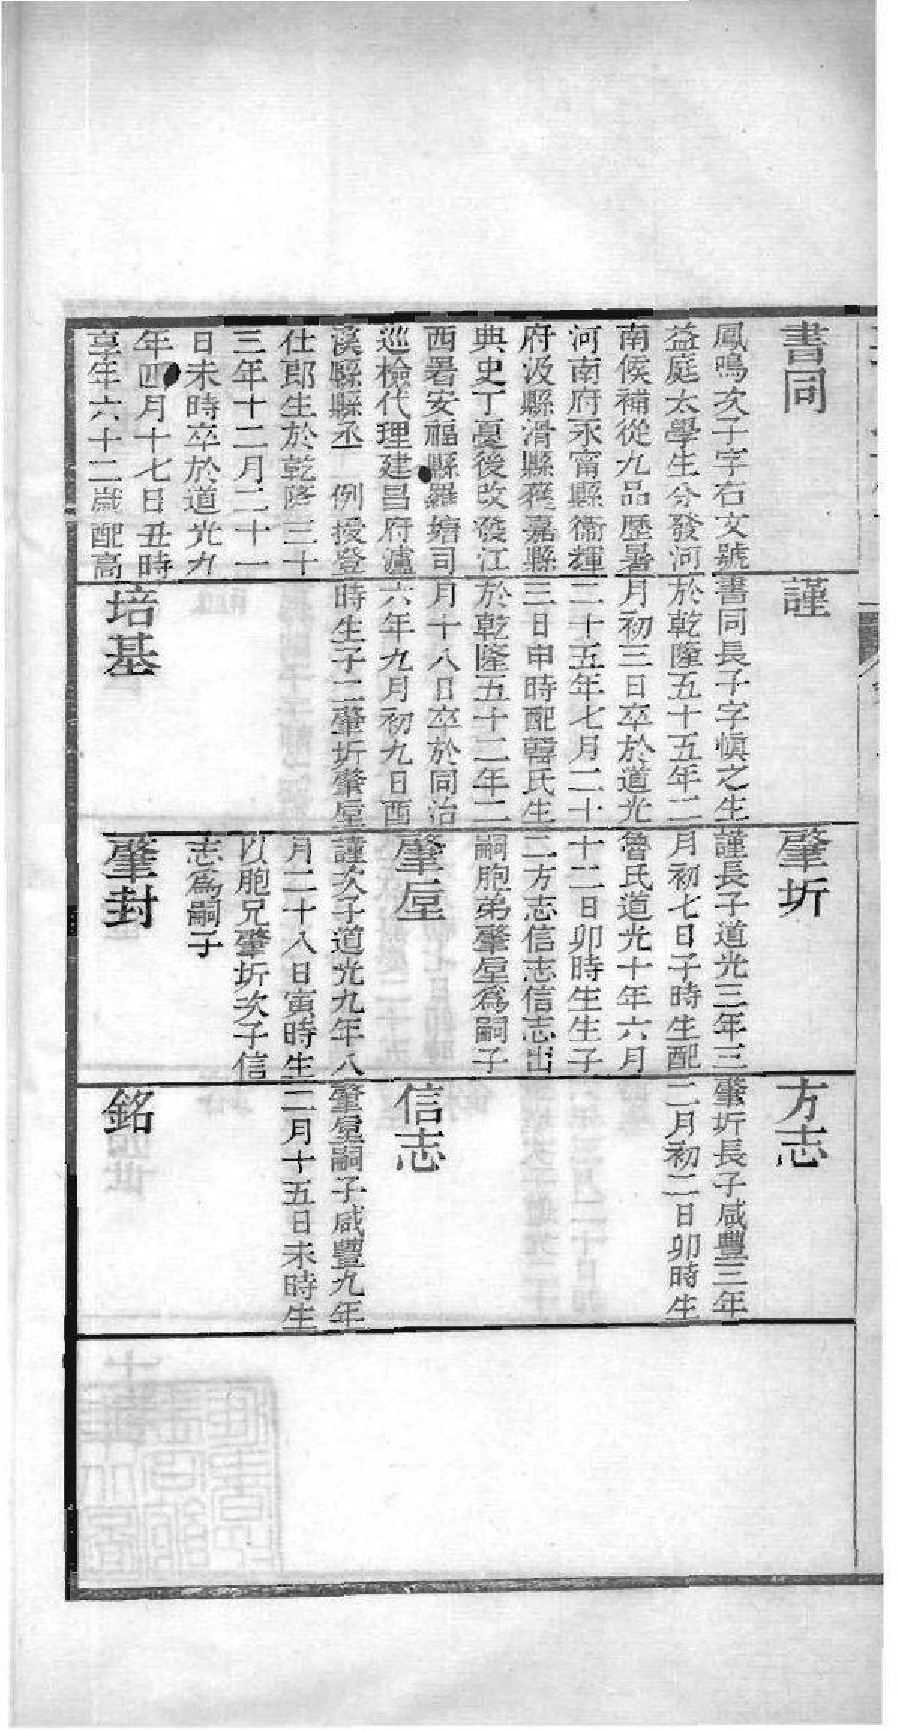 書同
鳳鳴次子字右文號
益庭太學生分發河
南候補從九品歷署
河南府永甯縣衞輝
府汲縣滑縣獲嘉縣
典史丁憂後改發江
西署安福縣羅塘司
巡檢代理建昌府瀘
溪縣縣丞 例授登
仕郎生於乾隆三十
三年十二月二十一
日未時卒於道光九
年四月十七日丑時
享年六十二歲配高
謹
書同長子字愼之生
於乾隆五十五年二
月初三日卒於道光
二十五年七月二十
三日申時配韓氏生
於乾隆五十二年二
月十八日卒於同治
六年九月初九日酉
時生子二肇圻肇垕
培基
肇圻
謹長子道光三年三
月初七日子時生配
魯氏道光十年六月
十二日卯時生生子
二方志信志信志出
嗣胞弟肇垕爲嗣子
肇垕
謹次子道光九年八
月二十八日寅時生
以胞兄肇圻次子信
志爲嗣子
肇封
方志
肇圻長子咸豐三年
二月初二日卯時生
信志
肇垕嗣子咸豐九年
二月十五日未時生
銘